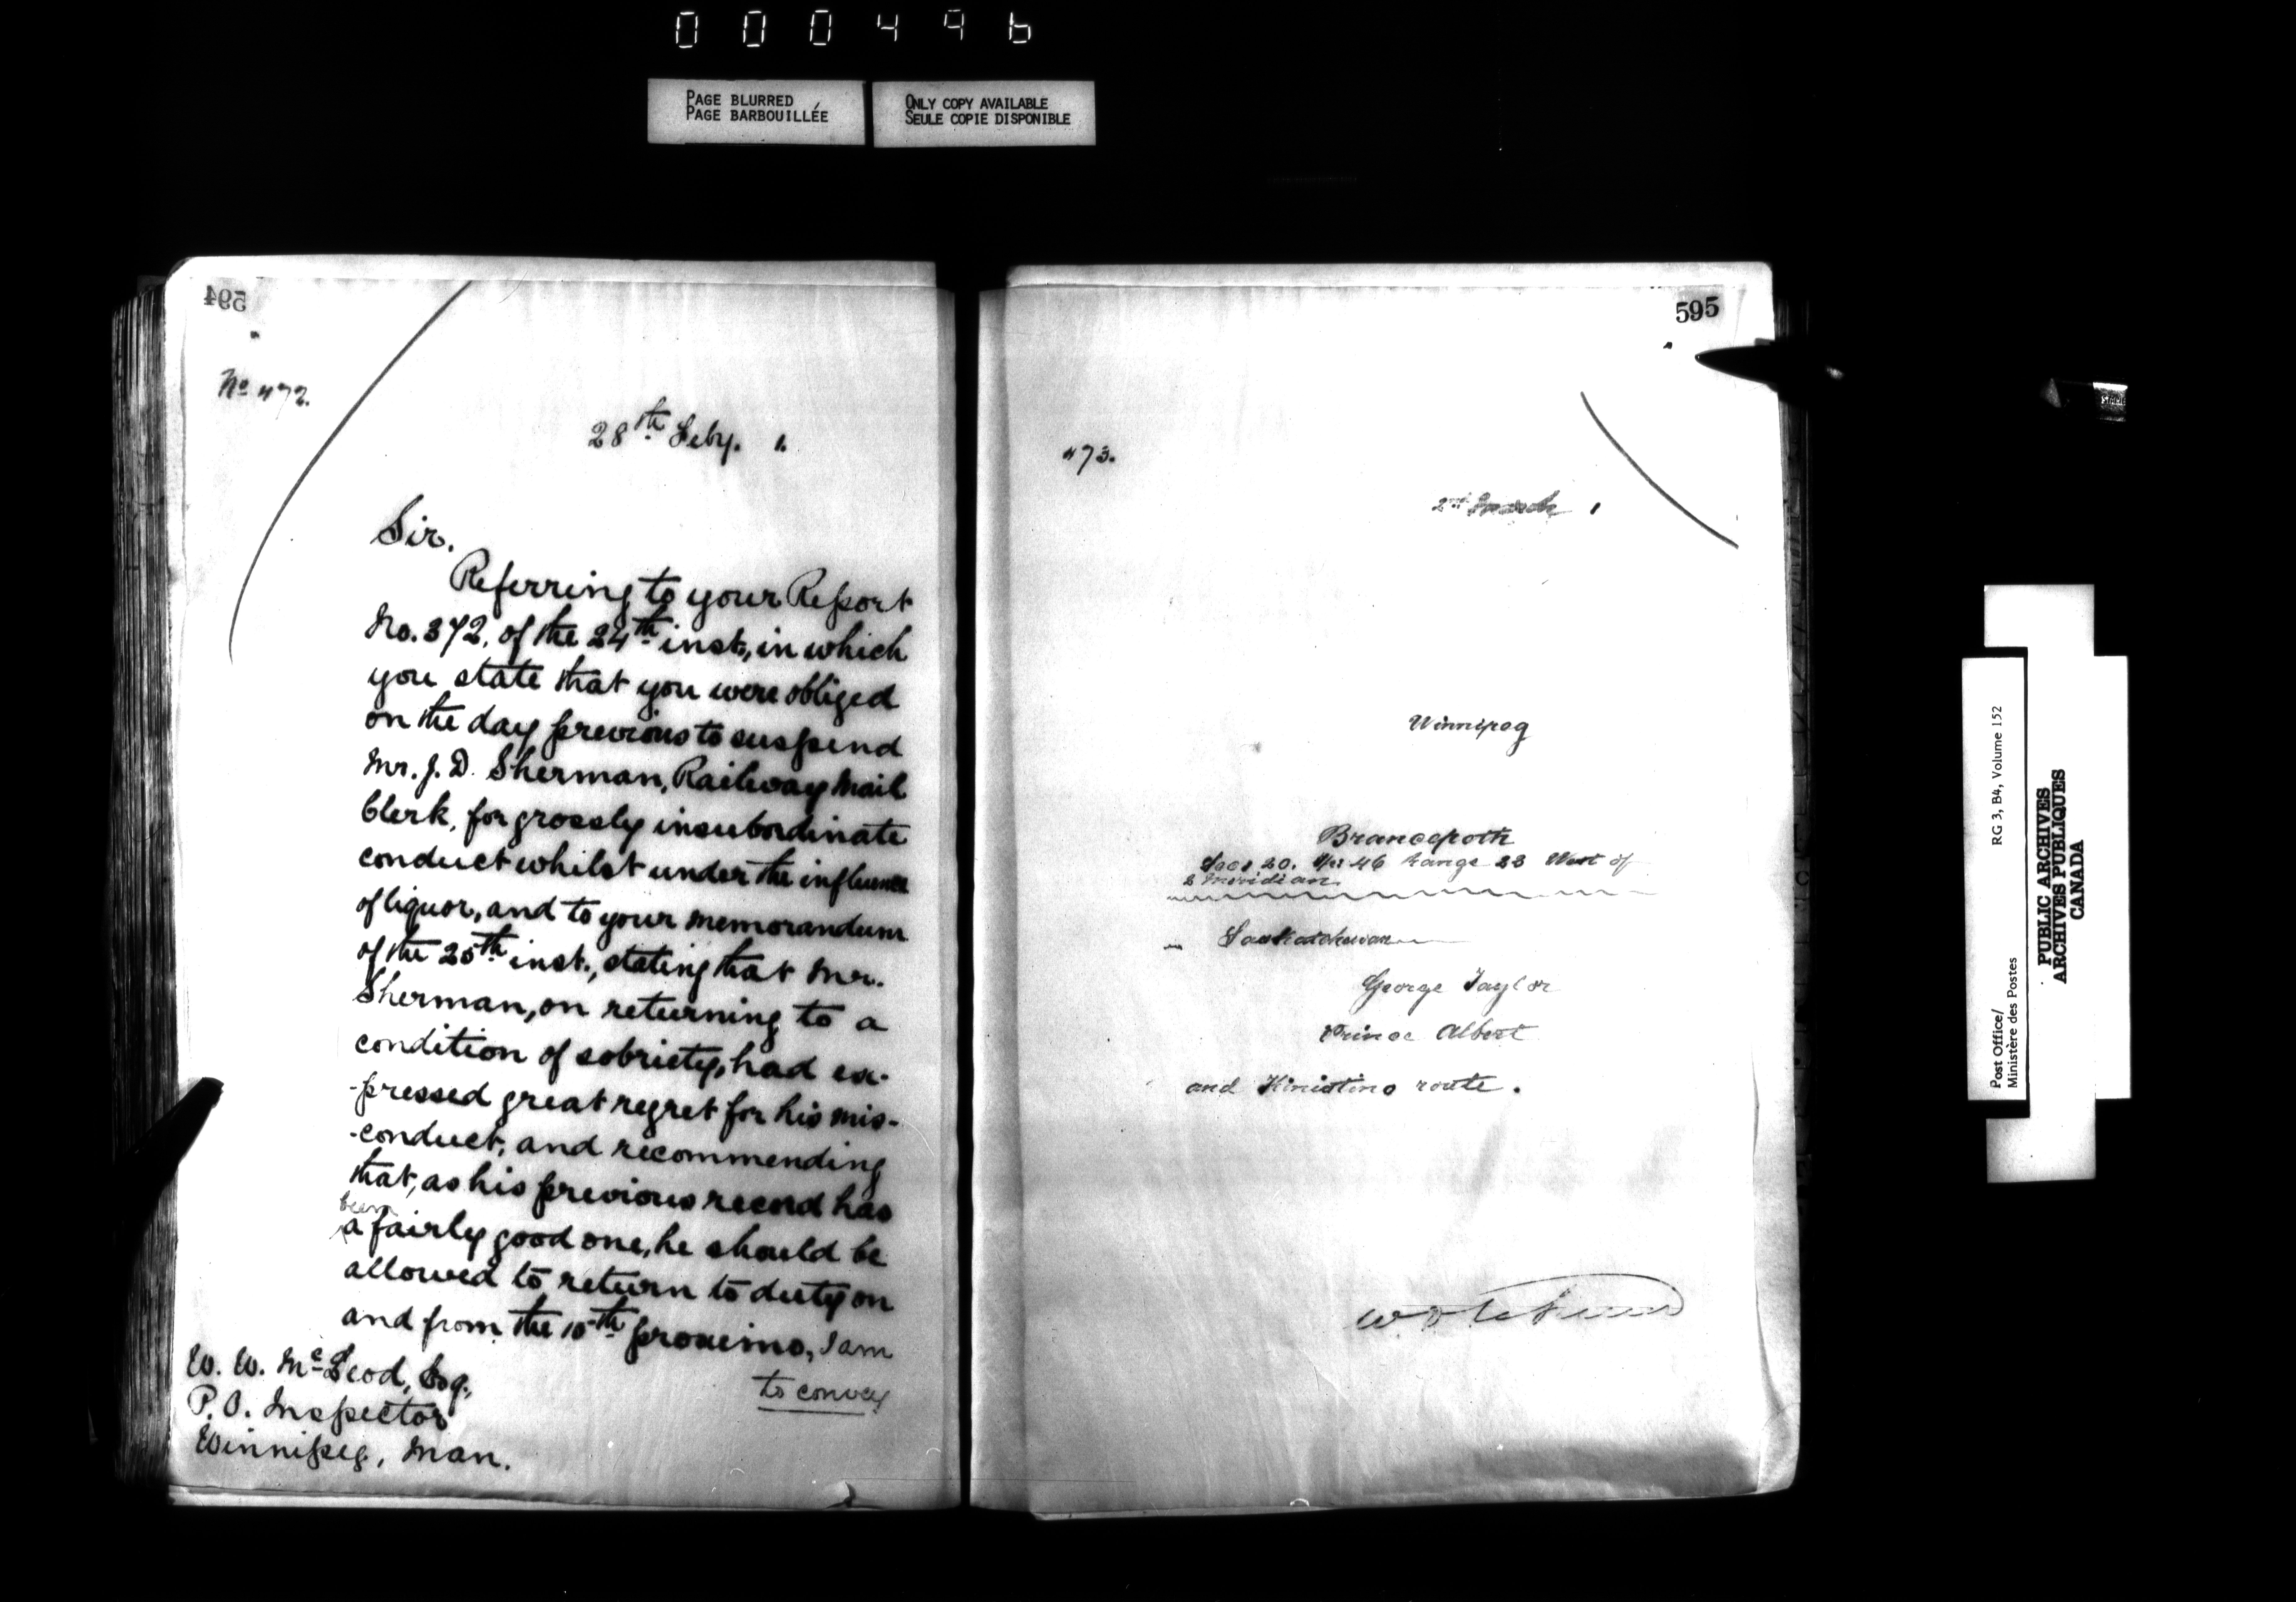 000496
PAGE BLURRED
PAGE BARBOUILLÉE
ONLY COPY AVAILABLE
SEULE COPIE DISPONIBLE
594
No 472.
28th Feby. 1.
Sir.
Referring to your Report
No. 372, of the 24th inst, in which
you state that you were obliged
on the day previous to suspend
Mr. J. D. Sherman, Railway Mail
Clerk, for grossly insubordinate
conduct whilst under the influence
of liquor, and to your memorandum
of the 25th inst., stating that Mr.
Sherman, on returning to a
condition of sobriety, had ex-
-pressed great regret for his mis-
-conduct, and recommending
that, as his previous record has
been
a fairly good one, he should be
allowed to return to duty on
and from the 10th proximo, I am
to convey
W. W. McLeod, Esq.,
P. O. Inspector
Winnipeg, Man.
595
473.
2nd March 1
Winnipeg
Brancepeth
Sec: 20. Tp: 46 Range 23 West of
2 Meridian
Saskatchewan
George Taylor
Prince Albert
and Kinistino route.
Post Office/
Ministère des Postes
RG 3, B4, Volume 152
PUBLIC ARCHIVES
ARCHIVES PUBLIQUES
CANADA